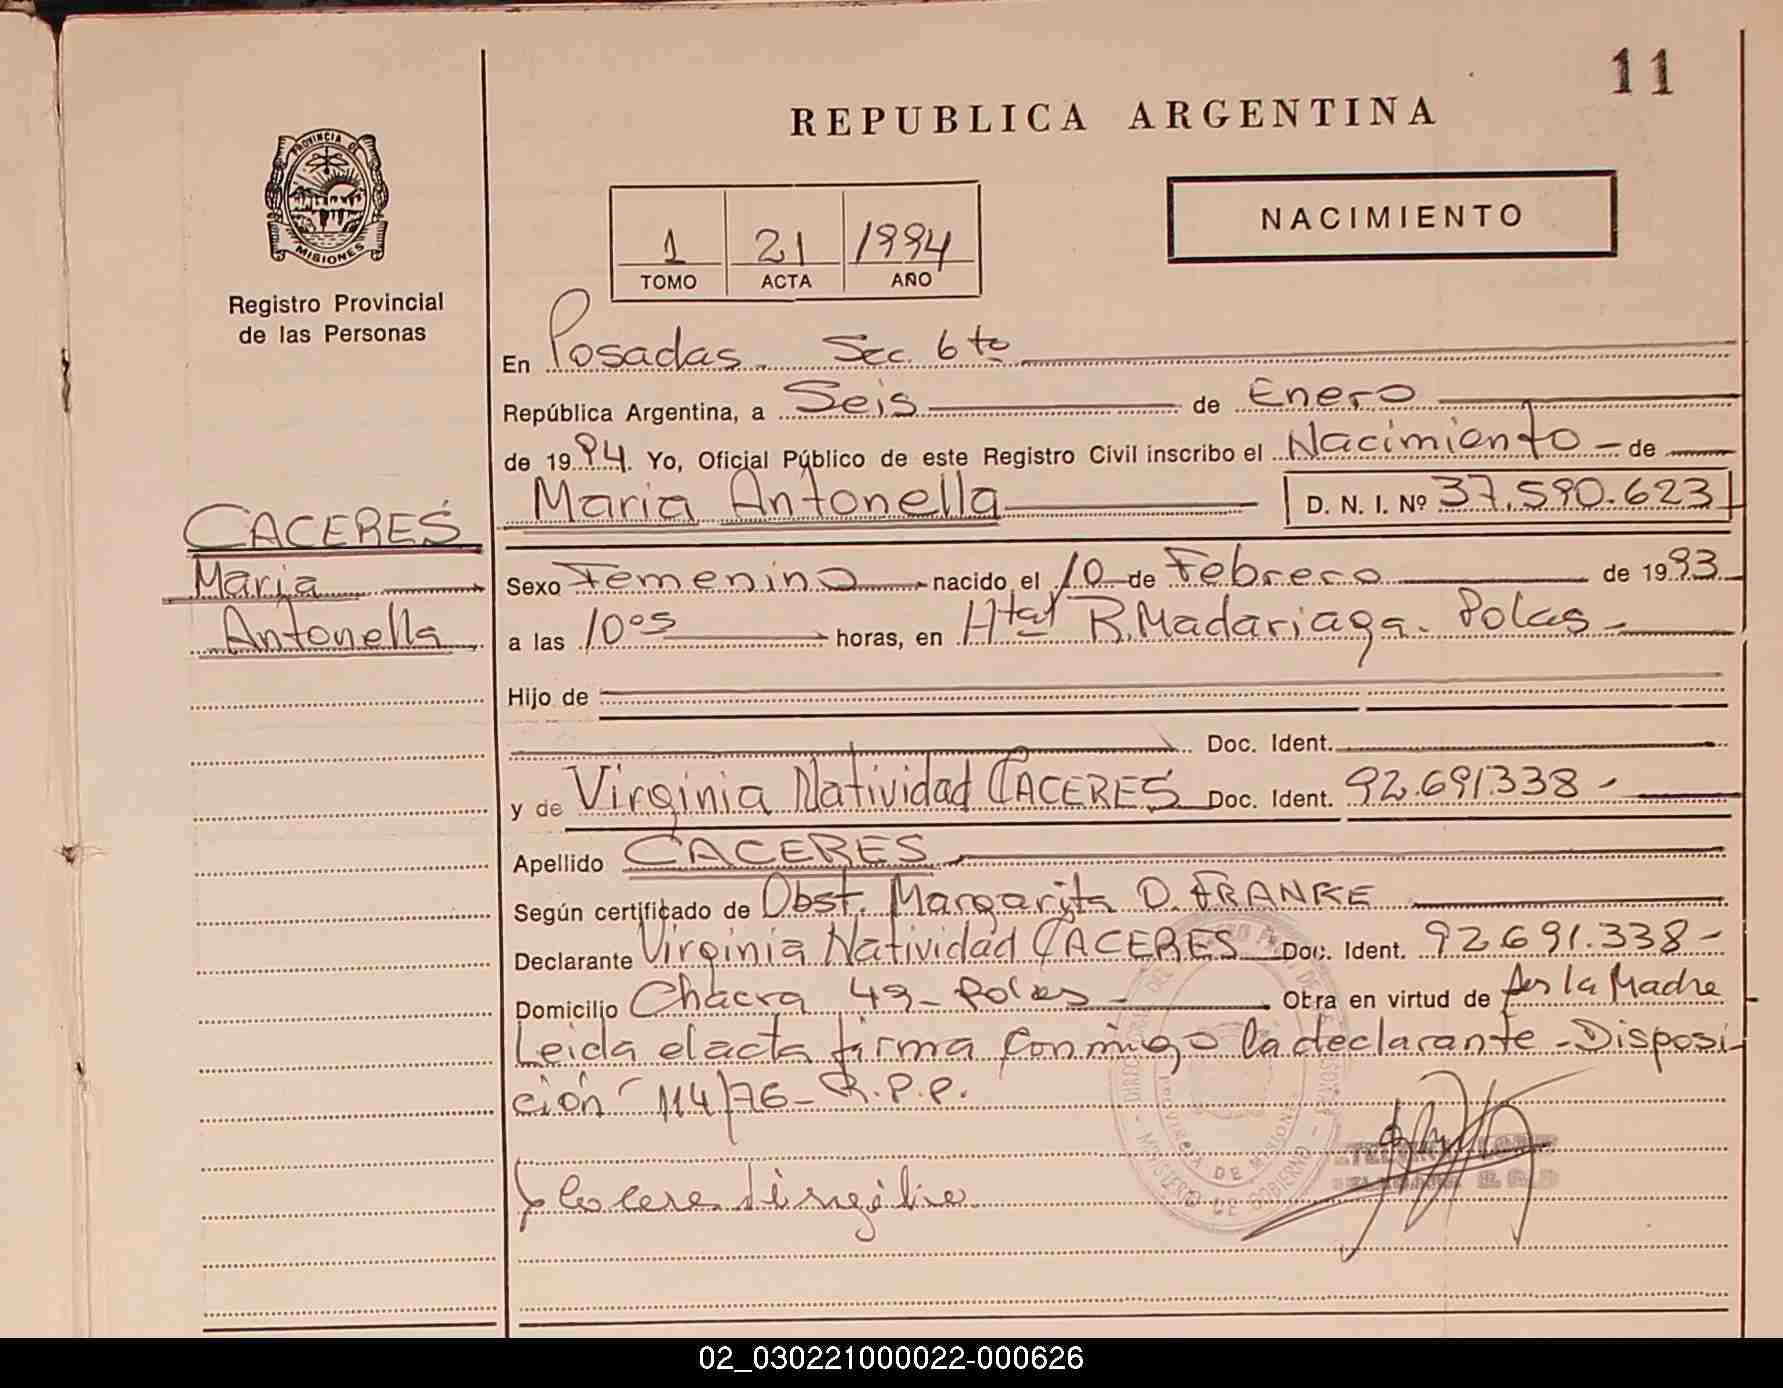 11
REPUBLICA ARGENTINA
PROVINCIA DE
MISIONES
Registro Provincial
de las Personas
NACIMIENTO
1 21 1994
TOMO ACTA AÑO
En Posadas - Sec. 6ta
República Argentina, a Seis de Enero
de 1994. Yo, Oficial Público de este Registro Civil inscribo el Nacimiento - de
Maria Antonella D. N. I. Nº 37.590.623
CACERES
Maria
Antonella
Sexo Femenino nacido el 10 de Febrero de 1993
a las 10os horas, en Htal R. Madariaga. Pdas -
Hijo de
Doc. Ident.
y de Virginia Natividad CACERES Doc. Ident. 92.691.338 -
Apellido CACERES
Según certificado de Obst. Margarita D. FRANKE
Declarante Virginia Natividad CACERES Doc. Ident. 92.691.338 -
Domicilio Chacra 49 - Pdas - Obra en virtud de ser la Madre
Leida el acta firma conmigo la declarante - Disposi-
ción 114/76 - R.P.P.
PROVINCIA DE MISIONES
MINISTERIO DE GOBIERNO
02_030221000022-000626